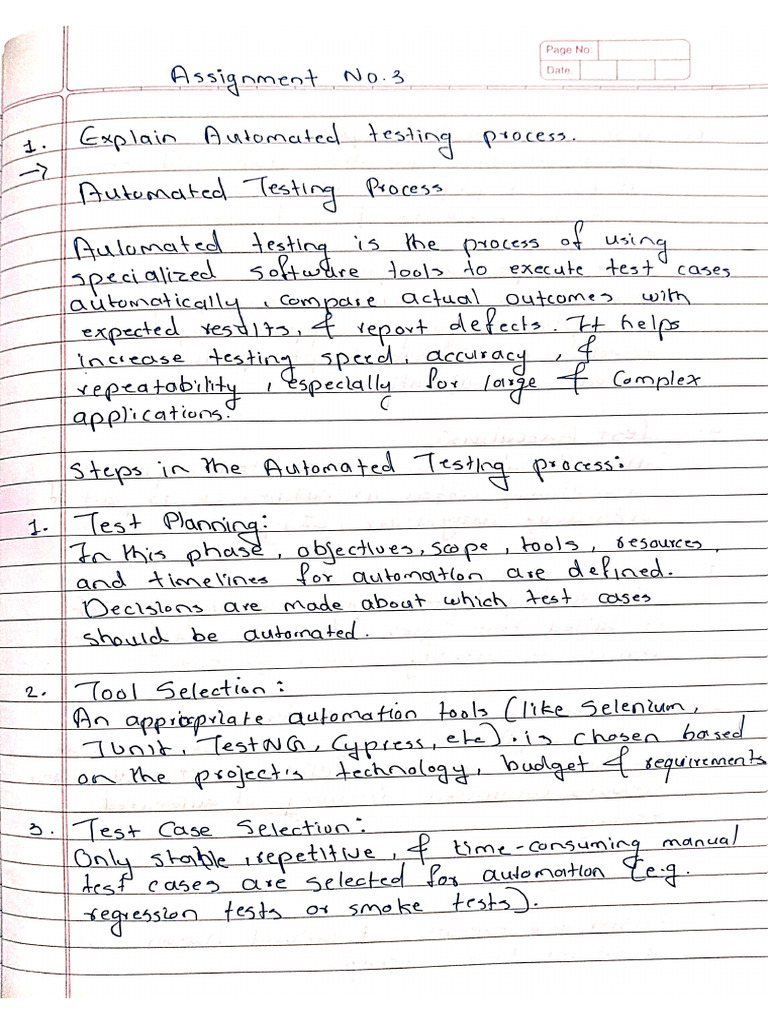 Page No:
Date
Assignment No. 3
1. Explain Automated testing process.
→
Automated Testing Process
Automated testing is the process of using
specialized software tools to execute test cases
automatically, compare actual outcomes with
expected results, & report defects. It helps
increase testing speed, accuracy, &
repeatability, especially for large & complex
applications.
Steps in the Automated Testing process:
1. Test Planning:
In this phase, objectives, scope, tools, resources,
and timelines for automation are defined.
Decisions are made about which test cases
should be automated.
2. Tool Selection:
An appriopriate automation tools (like Selenium,
JUnit, TestNG, Cypress, etc). is chosen based
on the project's technology, budget & requirements
3. Test Case Selection:
Only stable, repetitive, & time-consuming manual
test cases are selected for automation (e.g.
regression tests or smoke tests).